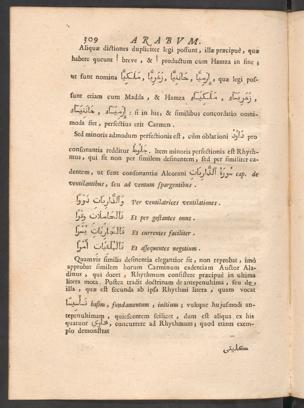 309 ARABVM.
Aliquæ dictiones dupliciter legi possunt, illæ præcipuè, quæ
habent quęunt ! breve, & ! productum cum Hamza in fine ;
ut sunt nomina quæ legi pos-
sunt etiam cum Madda, & Hamza
: si in his, & similibus concordatio omni-
moda siet, perfectius erit Carmen.
Sed minoris admodum perfectionis est, cùm oblationi pro
consonantia redditur Item minoris perfectionis est Rhyth-
mus, qui fit non per similem desinentem, sed per similiter ca-
dentem, ut sunt consonantia Alcorani سورة الذاريات cap. de
ventilantibus, seu ad ventum spargentibus.
والذاريات ذروا Per ventilatrices ventilationes.
فالحاملات وقرا Et per gestantes onus.
فالجاريات يسرا Et currentes faciliter.
Et assequentes negotium.
Quamvis similis desinentia elegantior sit, non reprobat, imò
approbat similem horum Carminum cadentiam Auctor Ala-
ditus, qui docet, Rhythmum consistere præcipuè in ultima
litera mota. Postea tradit doctrinam de antepenultima, seu de
illa, quæ est secunda ab ipsa Rhythmi litera, quam vocat
basim, fundamentum, initium ; vultque hujusmodi an-
tepenultimam, quiescentem scilicet, dum est aliqua ex his
quatuor concurrere ad Rhythmum; quod etiam exem-
plo demonstrat